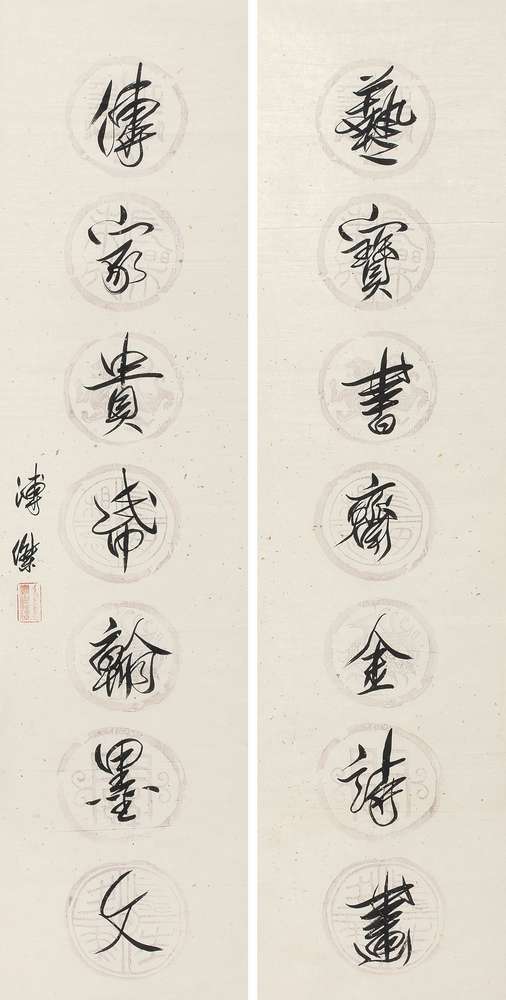 藝寶書齋金詩畫
傳家貴翰墨文
溥傑